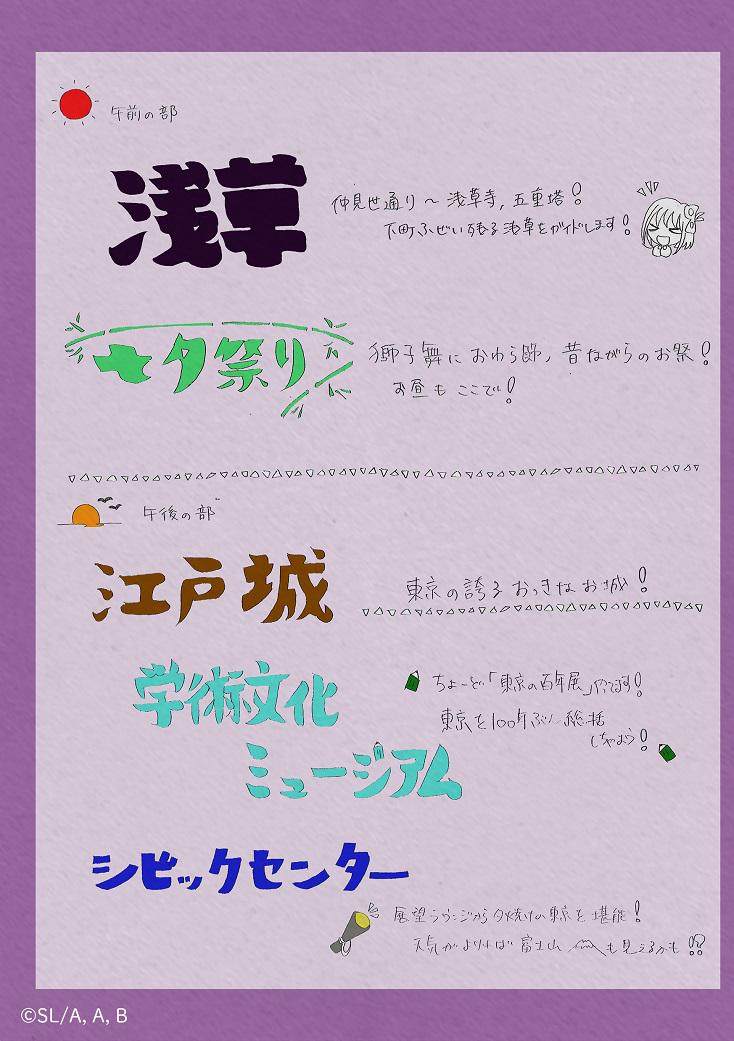 午前の部
浅草
仲見世通り〜浅草寺,五重塔!
下町ふぜい残る浅草をガイドします!
七夕祭り
獅子舞におわら節、昔ながらのお祭!
お昼もここで!
午後の部
江戸城
東京の誇るおっきなお城!
学術文化
ミュージアム
ちょーど「東京の百年展」やってます!
東京を100年ぶん総括
しちゃおう!
シビックセンター
展望ラウンジから夕焼けの東京を堪能!
天気がよければ富士山も見えるかも!?
©SL/A, A, B